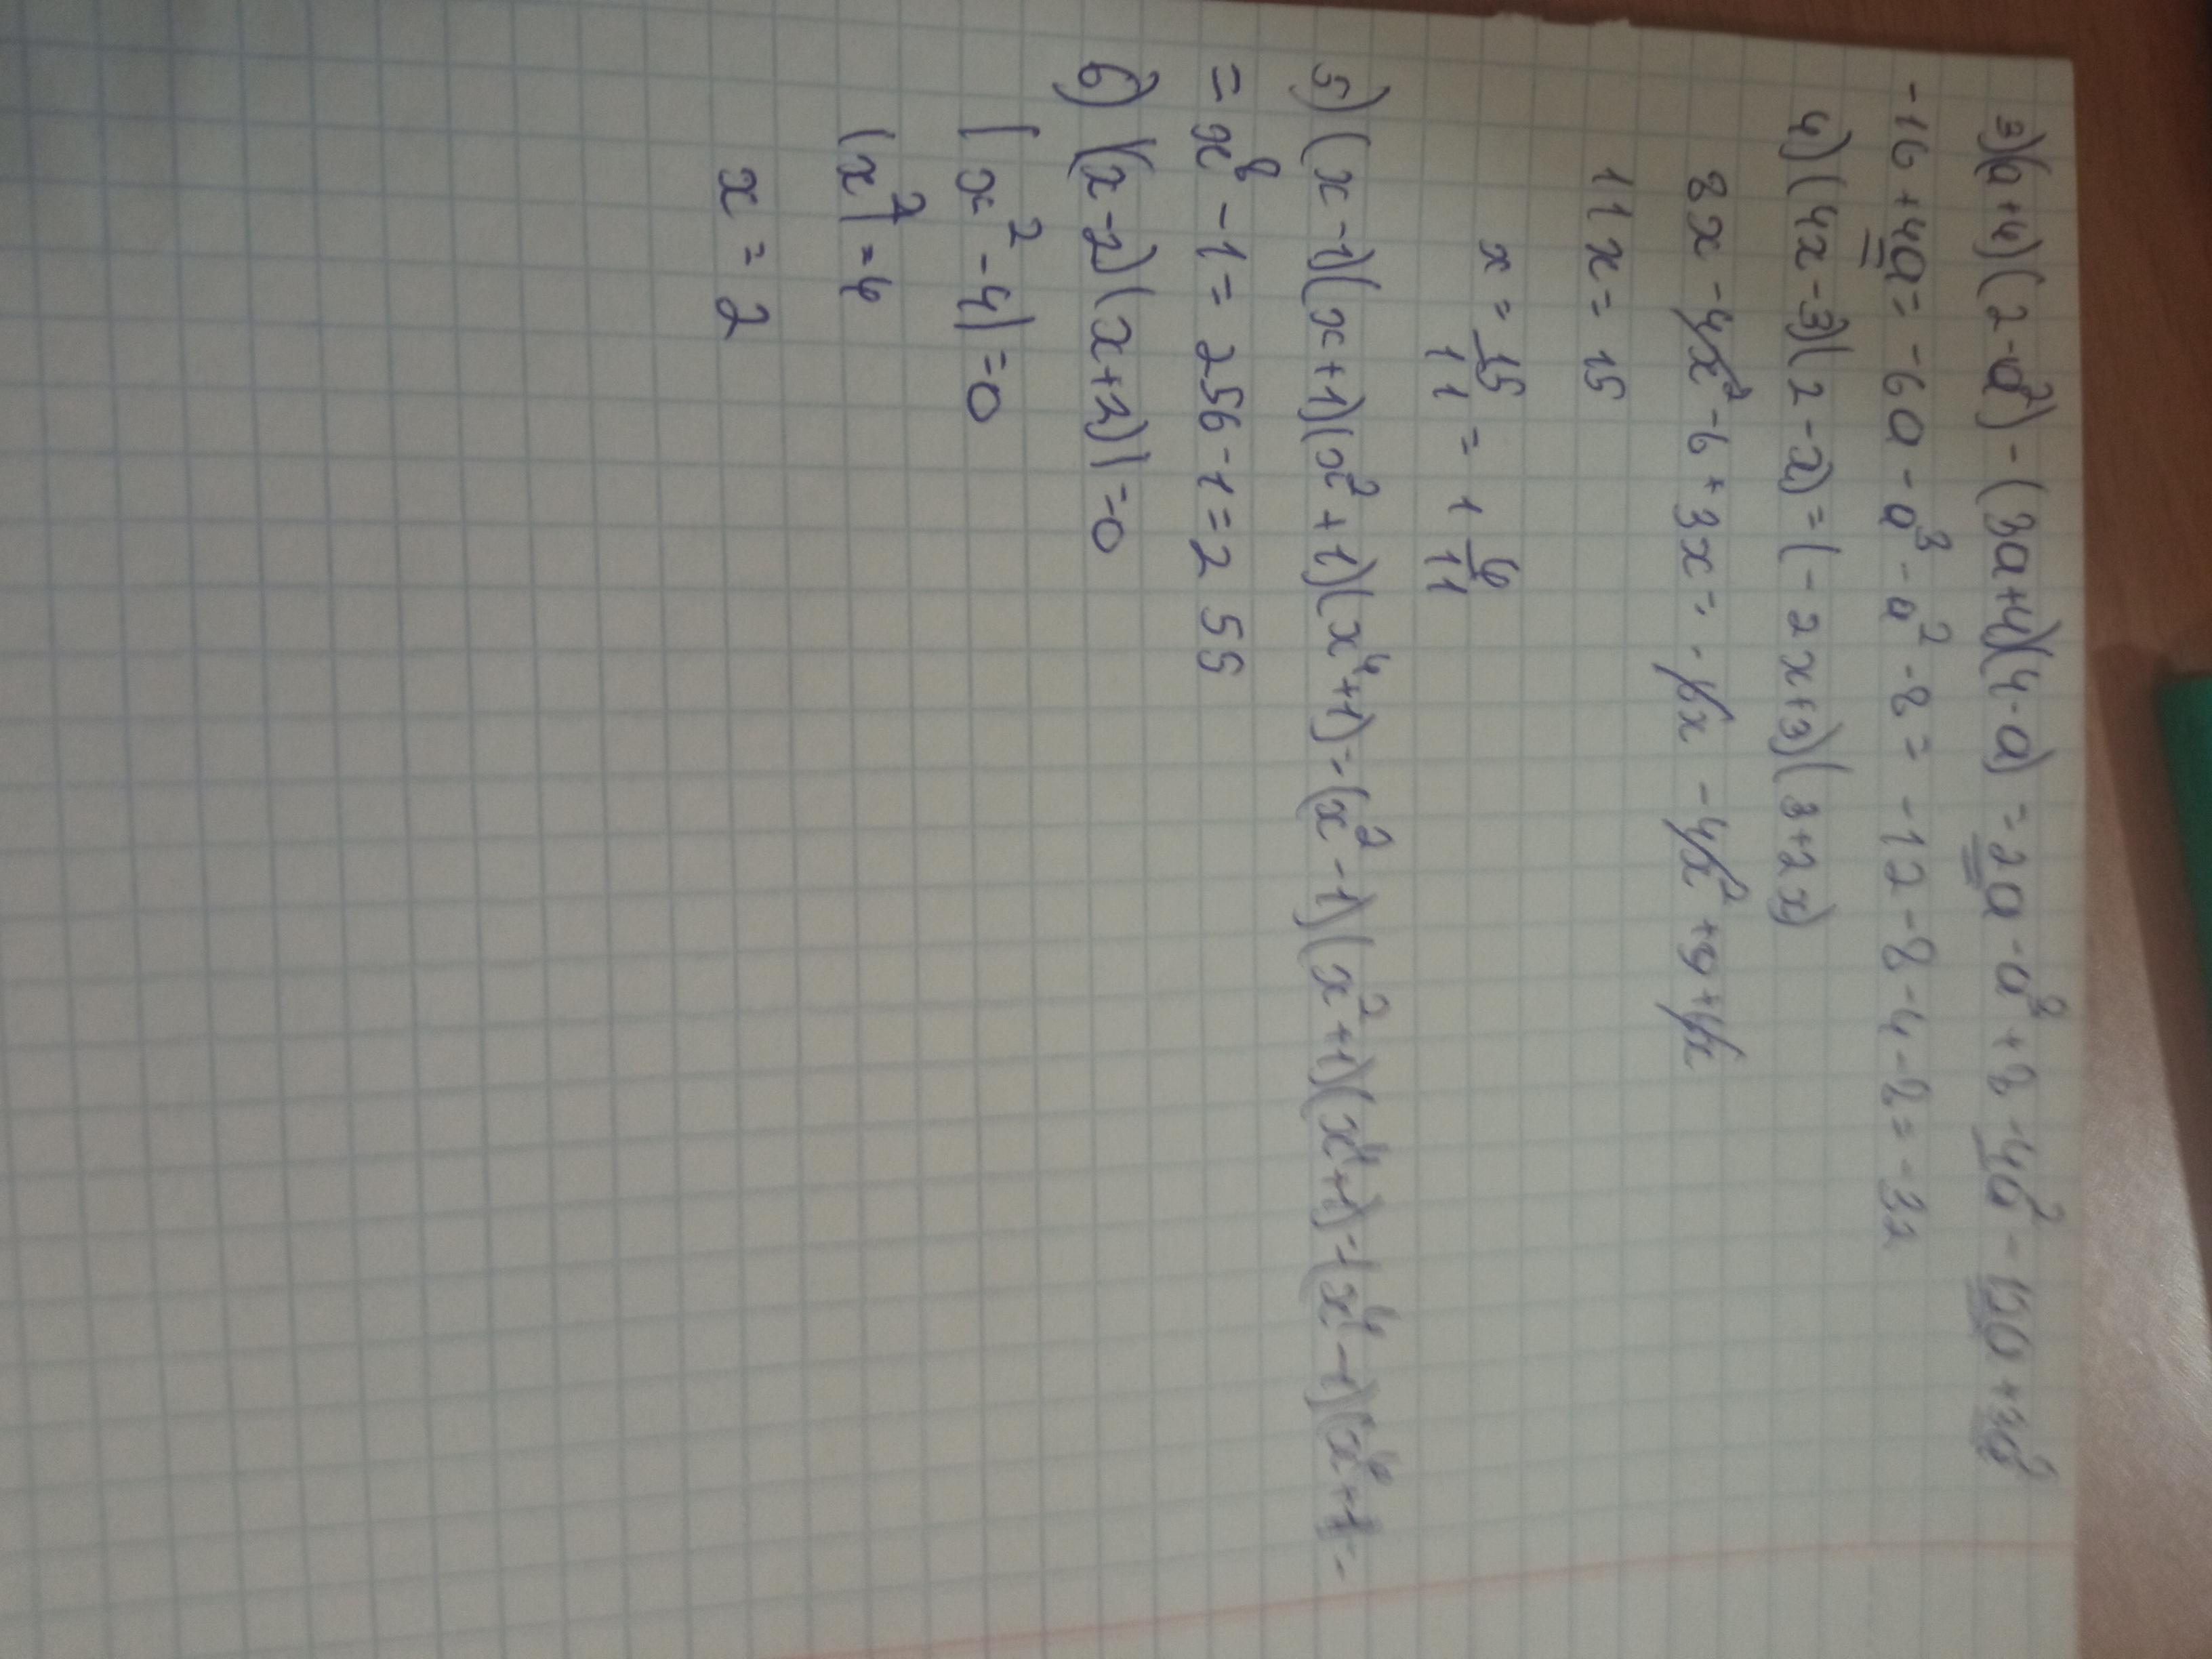 3) (a+4)(2-a²) - (3a+4)(4-a) = 2a - a³ + 8 - 4a² - 12a + 3a²
-16 + 4a = -6a - a³ - a² - 8 = -12 - 8 - 4 - 8 = -32
4) (4x-3)(2-x) = (-2x+3)(3+2x)
8x - 4x² - 6 + 3x = -6x - 4x² + 9 + 6x
11x = 15
x = 15/11 = 1 4/11
5) (x-1)(x+1)(x²+1)(x⁴+1) = (x²-1)(x²+1)(x⁴+1) = (x⁴-1)(x⁴+1) =
= x⁸ - 1 = 256 - 1 = 255
6) |(x-2)(x+2)| = 0
|x² - 4| = 0
|x²| = 4
x = 2